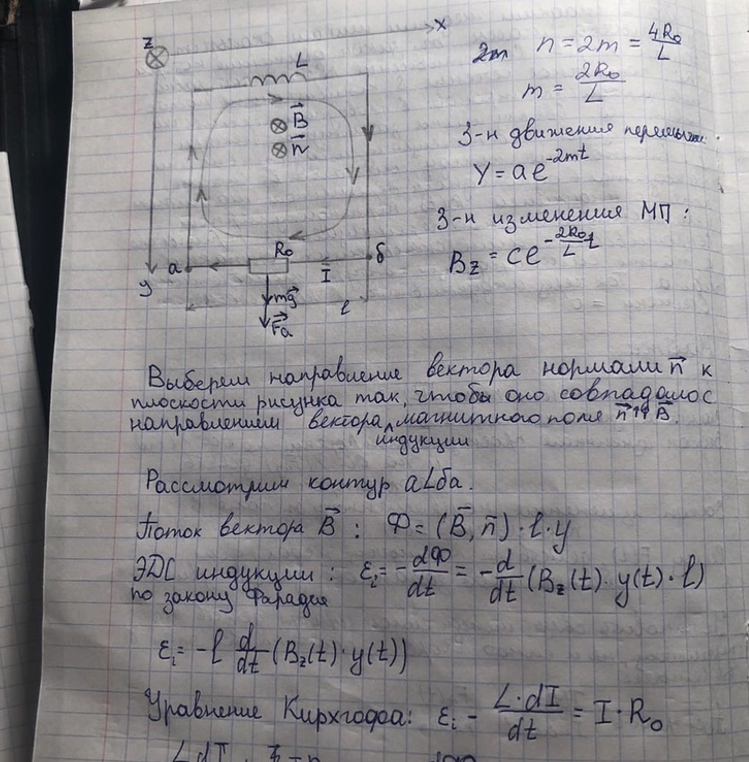 z
x
L
B⃗
n⃗
a
R₀
б
I
y
mg⃗
l
F⃗a
2m n = 2m = 4R₀/L
m = 2R₀/L
З-н движения
y = ae^(-2mt)
З-н изменения МП:
B_z = ce^(-(2R₀/L)t)
Выберем направление вектора нормали n⃗ к
плоскости рисунка так, чтобы оно совпадало с
направлением вектора магнитного поля n⃗↑↑B⃗.
индукции
Рассмотрим контур aLбa.
Поток вектора B⃗ : Ф = (B⃗, n⃗) · l · y
ЭДС индукции : εᵢ = -dФ/dt = -d/dt (B_z(t) · y(t) · l)
по закону Фарадея
εᵢ = -l d/dt (B_z(t) · y(t))
Уравнение Кирхгофа: εᵢ - L·dI/dt = I · R₀